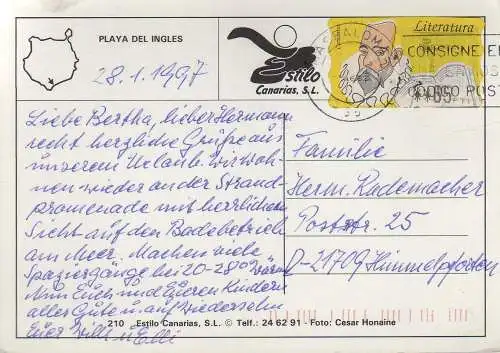 PLAYA DEL INGLES
28.1.1997
Estilo
Canarias, S.L.
Literatura
CONSIGNE EL
CODIGO POST
Liebe Bertha, lieber Hermann
recht herzliche Grüße aus
unserem Urlaub. Wir woh-
nen wieder an der Strand-
promenade mit herrlichem
Sicht auf den Badebetrieb
am Meer. Machen viele
Spaziergänge bei 20-28° warm
Nun Euch und Euren Kindern
alles Gute u. auf Wiedersehn
Euer Willi u Elli
Familie
Herm. Rademacher
Poststr. 25
D-21709 Himmelpforten
210 Estilo Canarias, S.L. © Telf.: 24 62 91 - Foto: Cesar Honaine